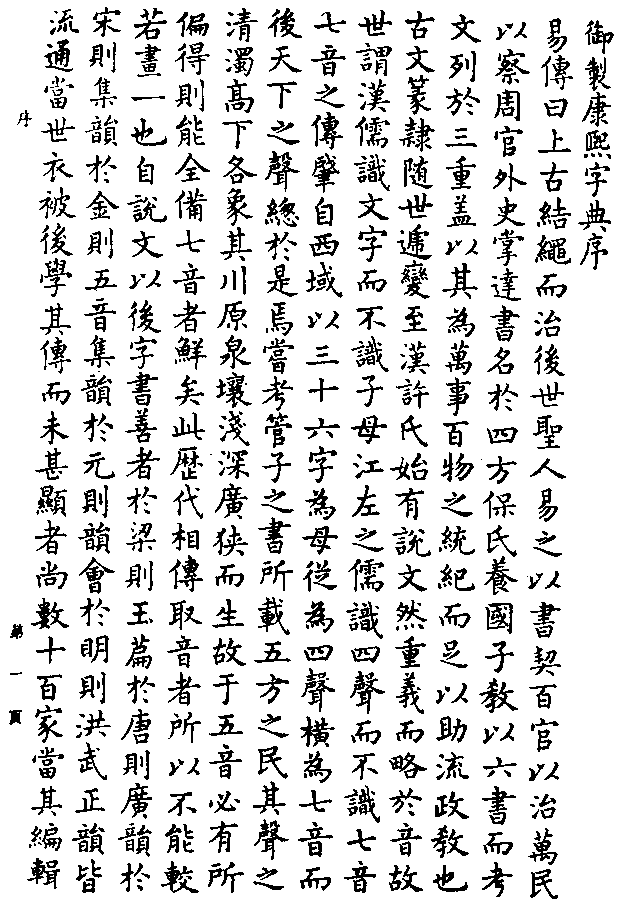 御製康熙字典序
易傳曰上古結繩而治後世聖人易之以書契百官以治萬民
以察周官外史掌達書名於四方保氏養國子教以六書而考
文列於三重盖以其為萬事百物之統紀而足以助流政教也
古文篆隸随世遞變至漢許氏始有說文然重義而略於音故
世謂漢儒識文字而不識子母江左之儒識四聲而不識七音
七音之傳肇自西域以三十六字為母從為四聲橫為七音而
後天下之聲總於是焉嘗考管子之書所載五方之民其聲之
清濁高下各象其川原泉壤淺深廣狹而生故于五音必有所
偏得則能全備七音者鮮矣此歷代相傳取音者所以不能較
若畫一也自說文以後字書善者於梁則玉篇於唐則廣韻於
宋則集韻於金則五音集韻於元則韻會於明則洪武正韻皆
流通當世衣被後學其傳而未甚顯者尚數十百家當其編輯
序
第一頁